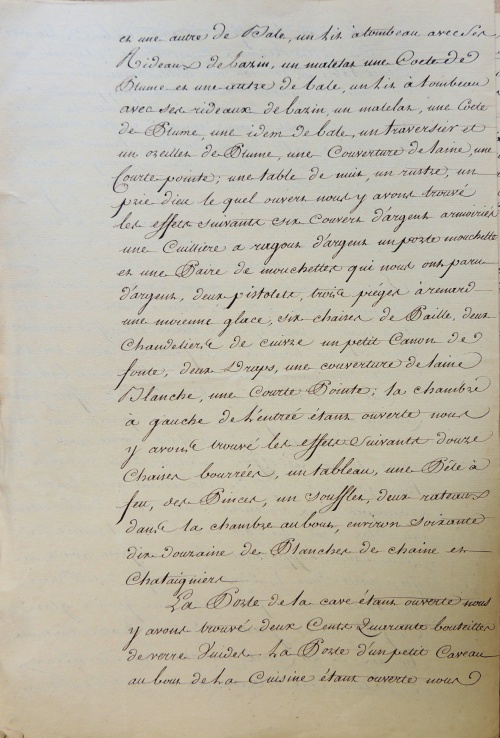 et une autre de Bale, un lit a tombeau avec ses
Rideaux de bazin, un matelas une Coete de
Plume et une autre de bale, un lit à tombeau
avec ses rideaux de bazin, un matelas, une Coete
de Plume, une idem de bale, un traversier et
un oreiller de Plume, une Couverture de laine, une
Courte pointe; une table de nuit, un rustre, un
prie dieu le quel ouvert nous y avons trouvé
les effets suivants six couvert d'argent armoiriés
une Cuillière a ragout d'argent un porte mouchette
et une Paire de mouchettes qui nous ont paru
d'argent, deux pistolets, trois piéges à renard
une moienne glace, six chaises de Paille, deux
Chandeliers de cuivre un petit Canon de
fonte, deux Draps, une couverture de laine
Blanche, une Courte Pointe; la chambre
à gauche de l'entrée étant ouverte nous
y avons trouvé les effets suivants douze
Chaises bourrées, un tableau, une Pêle à
feu, des Pinces, un soufflet, deux rateaux
dans la chambre au bout, environ soixante
dix douzaine de Planches de chaine et
Chataigniers
La Porte de la cave étant ouverte nous
y avons trouvé deux Cents Quarante bouteilles
de verre Vuides La Porte d'un petit Caveau
au bout de La Cuisine étant ouverte nous